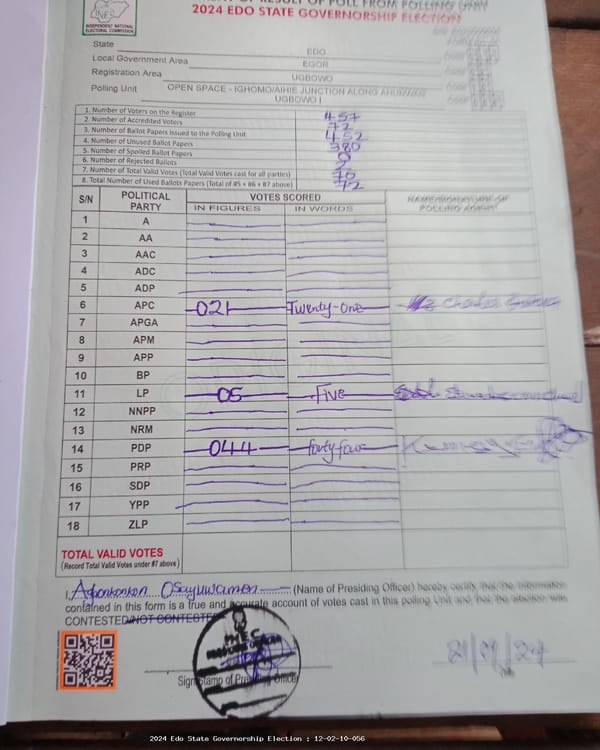 INEC
INDEPENDENT NATIONAL
ELECTORAL COMMISSION
OF RESULT OF POLL FROM POLLING UNIT
2024 EDO STATE GOVERNORSHIP ELECTION
State EDO
Local Government Area EGOR
Registration Area UGBOWO
Polling Unit OPEN SPACE - IGHOMO/AIHIE JUNCTION ALONG
UGBOWO I
1. Number of Voters on the Register 457
2. Number of Accredited Voters 72
3. Number of Ballot Papers Issued to the Polling Unit 452
4. Number of Unused Ballot Papers 380
5. Number of Spoiled Ballot Papers 0
6. Number of Rejected Ballots 2
7. Number of Total Valid Votes (Total Valid Votes cast for all parties) 70
8. Total Number of Used Ballots Papers (Total of #5 + #6 + #7 above) 72
S/N POLITICAL PARTY VOTES SCORED NAME/SIGNATURE OF POLLING AGENT
IN FIGURES IN WORDS
1 A
2 AA
3 AAC
4 ADC
5 ADP
6 APC 021 Twenty-one
7 APGA
8 APM
9 APP
10 BP
11 LP 05 Five
12 NNPP
13 NRM
14 PDP 044 fourty four
15 PRP
16 SDP
17 YPP
18 ZLP
TOTAL VALID VOTES
(Record Total Valid Votes under #7 above)
I, Osayuwamen (Name of Presiding Officer) hereby certify that the information
contained in this form is a true and accurate account of votes cast in this polling Unit and that the election was
CONTESTED/NOT CONTESTED
INEC
PRESIDING OFFICER
Sign Stamp of Presiding Officer
21/09/24
2024 Edo State Governorship Election : 12-02-10-056